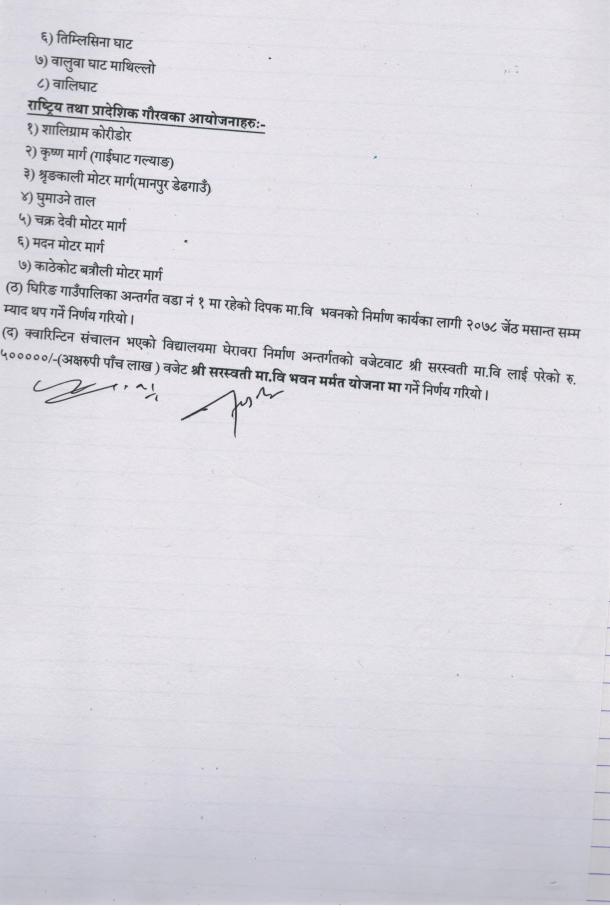 ६) तिम्लिसिना घाट
७) वालुवा घाट माथिल्लो
८) वालिघाट
राष्ट्रिय तथा प्रादेशिक गौरवका आयोजनाहरुः-
१) शालिग्राम कोरीडोर
२) कृष्ण मार्ग (गाईघाट गल्याङ)
३) श्रृङकाली मोटर मार्ग(मानपुर डेढगाउँ)
४) घुमाउने ताल
५) चक्र देवी मोटर मार्ग
६) मदन मोटर मार्ग
७) काठेकोट बत्रौली मोटर मार्ग
(ठ) घिरिङ गाउँपालिका अन्तर्गत वडा नं १ मा रहेको दिपक मा.वि भवनको निर्माण कार्यका लागी २०७८ जेंठ मसान्त सम्म
म्याद थप गर्ने निर्णय गरियो ।
(द) क्वारिन्टिन संचालन भएको विद्यालयमा घेरावरा निर्माण अन्तर्गतको वजेटवाट श्री सरस्वती मा.वि लाई परेको रु.
५०००००/-(अक्षरुपी पाँच लाख ) वजेट श्री सरस्वती मा.वि भवन मर्मत योजना मा गर्ने निर्णय गरियो ।